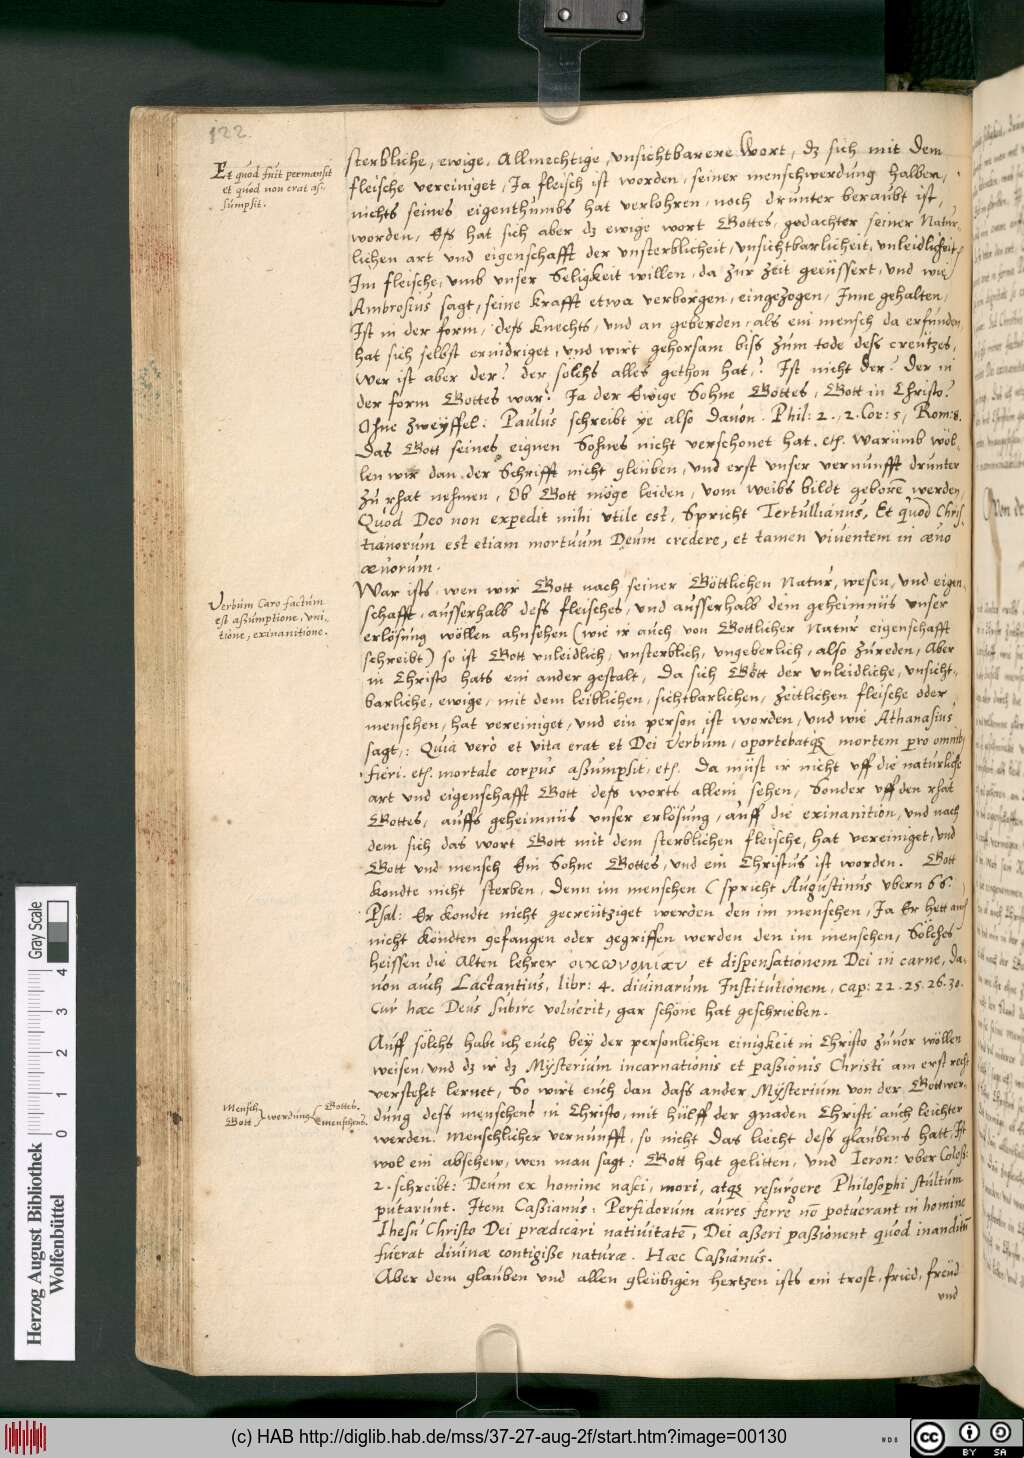 122.
Et quod fuit permansit
et quod non erat as-
sumpsit.
sterbliche, ewige, Allmechtige, vnsichtbarere Wort, dz sich mit dem
fleische vereiniget, Ja fleisch ist worden, seiner menschwerdung halben,
nichts seines eigenthumbs hat verlohren, noch drunter beraubt ist,
worden, Ess hat sich aber dz ewige wort Gottes, gedachter seiner Natur-
lichen art vnd eigenschafft der vnsterblicheit, vnsichtbarlicheit, vnleidlicheit,
Im fleische, vmb vnser Seligkeit willen, da zur zeit geeüssert, vnd wie
Ambrosius sagt, seine krafft etwa verborgen, eingezogen, Inne gehalten,
Ist in der form, dess knechts, vnd an geberden, als ein mensch da erfunden,
hat sich selbst ernidriget, vnd wirt gehorsam biss zum tode dess creützes,
Wer ist aber der? der solchs alles gethon hat,? Ist nicht der? der in
der form Gottes war? Ja der Ewige Sohne Gottes, Gott in Christo?
Ohne zweyffel: Paulus schreibt ye also dauon. Phil: 2., 2. Cor: 5, Rom: 8.
Das Gott seines eignen Sohnes nicht verschonet hat. etc. Warümb wöl-
len wir dan der Schrifft nicht gleüben, vnd erst vnser vernunfft drunter
zü rhat nehmen, Ob Gott möge leiden, vom weibs bildt geborē werden,
Quod Deo non expedit mihi vtile est, Spricht Tertullianus, Et quod Chris-
tianorum est etiam mortuum Deum credere, et tamen viuentem in æuo
æuorum.
Verbum Caro factum
est assumptione, vni-
tione, exinanitione.
War ists, wen wir Gott nach seiner Göttlichen Natur, wesen, vnd eigen-
schafft, ausserhalb dess fleisches, vnd ausserhalb dem geheimnüs vnser
erlösung wöllen ahnsehen (wie ir auch von Gottlicher Natur eigenschafft
schreibt) so ist Gott vnleidlich, vnsterblich, vngeberlich, also züreden, Aber
in Christo hats ein ander gestalt, Da sich Gott der vnleidliche, vnsicht-
barliche, ewige, mit dem leiblichen, sichtbarlichen, zeitlichen fleische oder
menschen, hat vereiniget, vnd ein person ist worden, vnd wie Athanasius
sagt,: Quia verò et vita erat et Dei Verbum, oportebatq; mortem pro omnib;
fieri. etc. mortale corpus assumpsit, etc. Da müst ir nicht vff die naturliche
art vnd eigenschafft Gott dess worts allein sehen, Sonder vff den rhat
Gottes, auffs geheimnüs vnser erlösung, auff die exinanition, vnd nach
dem sich das wort Gott mit dem sterblichen fleische, hat vereiniget, vnd
Gott vnd mensch Ein Sohne Gottes, vnd ein Christus ist worden. Gott
kondte nicht sterben, denn im menschen (spricht Augustinus vbern 66.
Psal: Er kondte nicht gecreütziget werden den im menschen, Ja Er hett auch
nicht köndten gefangen oder gegriffen werden den im menschen, Sölches
heissen die Alten lehrer οικονομιαν et dispensationem Dei in carne, da-
uon auch Lactantius, libr: 4. diuinarum Institutionem, cap: 22. 25. 26. 30.
Cur hæc Deus subire voluerit, gar schöne hat geschrieben.
Auff sölchs habe ich euch bey der personlichen einigkeit in Christo züuor wöllen
weisen, vnd dz ir dz Mÿsterium incarnationis et passionis Christi am erst recht
verstehet lernet, So wirt euch dan dass ander Mÿsterium von der Gottwer-
Mensch
Gott } werdung { Gottes.
menschens.
dung dess menschens in Christo, mit hülff der gnaden Christi auch leichter
werden. Menschlicher vernunfft, so nicht das liecht dess glaubens hatt, Ist
wol ein abschew, wen man sagt: Gott hat gelitten, vnd Ieron: vber Coloss:
2. schreibt: Deum ex homine nasci, mori, atq; resurgere Philosophi stultum
putarunt. Item Cassianus: Perfidorum aures ferre nō potuerant in homine
Ihesu Christo Dei prædicari natiuitatē, Dei asseri passionem quod inauditū
fuerat diuinæ contigisse naturæ. Hæc Cassianus.
Aber dem glauben vnd allen gleübigen hertzen ists ein trost, fried, freüd
vnd
Herzog August Bibliothek
Wolfenbüttel
Gray Scale
0 1 2 3 4
(c) HAB http://diglib.hab.de/mss/37-27-aug-2f/start.htm?image=00130
WDB
cc BY SA